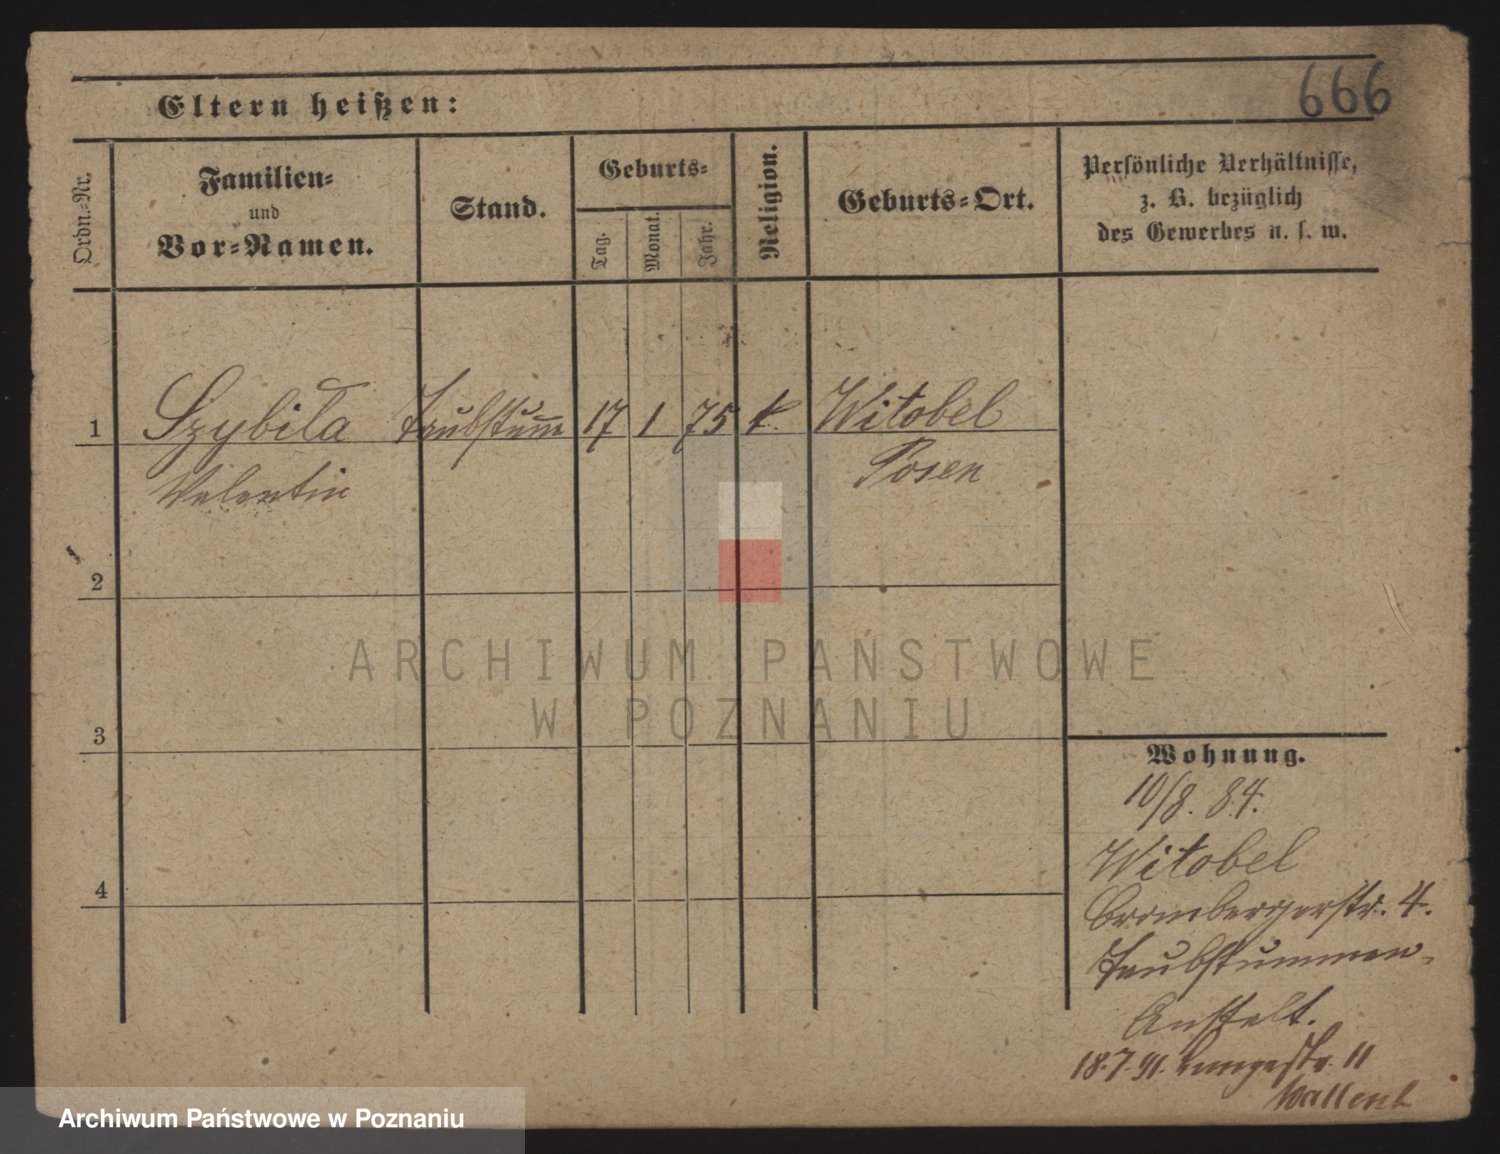 666
Eltern heißen:
Ordn.-Nr.
Familien-
und
Vor-Namen.
Stand.
Geburts-
Tag.
Monat.
Jahr.
Religion.
Geburts-Ort.
Persönliche Verhältnisse,
z. B. bezüglich
des Gewerbes u. s. w.
1 Szybila Taubstumm 17 1 75 k. Witobel
Valentin Posen
2
3
4
Wohnung.
10/8. 84.
Witobel
Brombergerstr. 4.
Taubstummen-
Anstalt.
18.7.91. Langestr. 11
ARCHIWUM PAŃSTWOWE
W POZNANIU
Archiwum Państwowe w Poznaniu